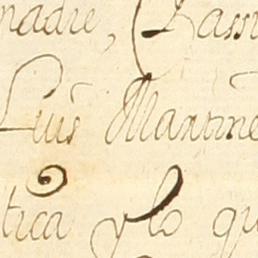 madre, (Lassi
Luis Martine
tica y lo qu